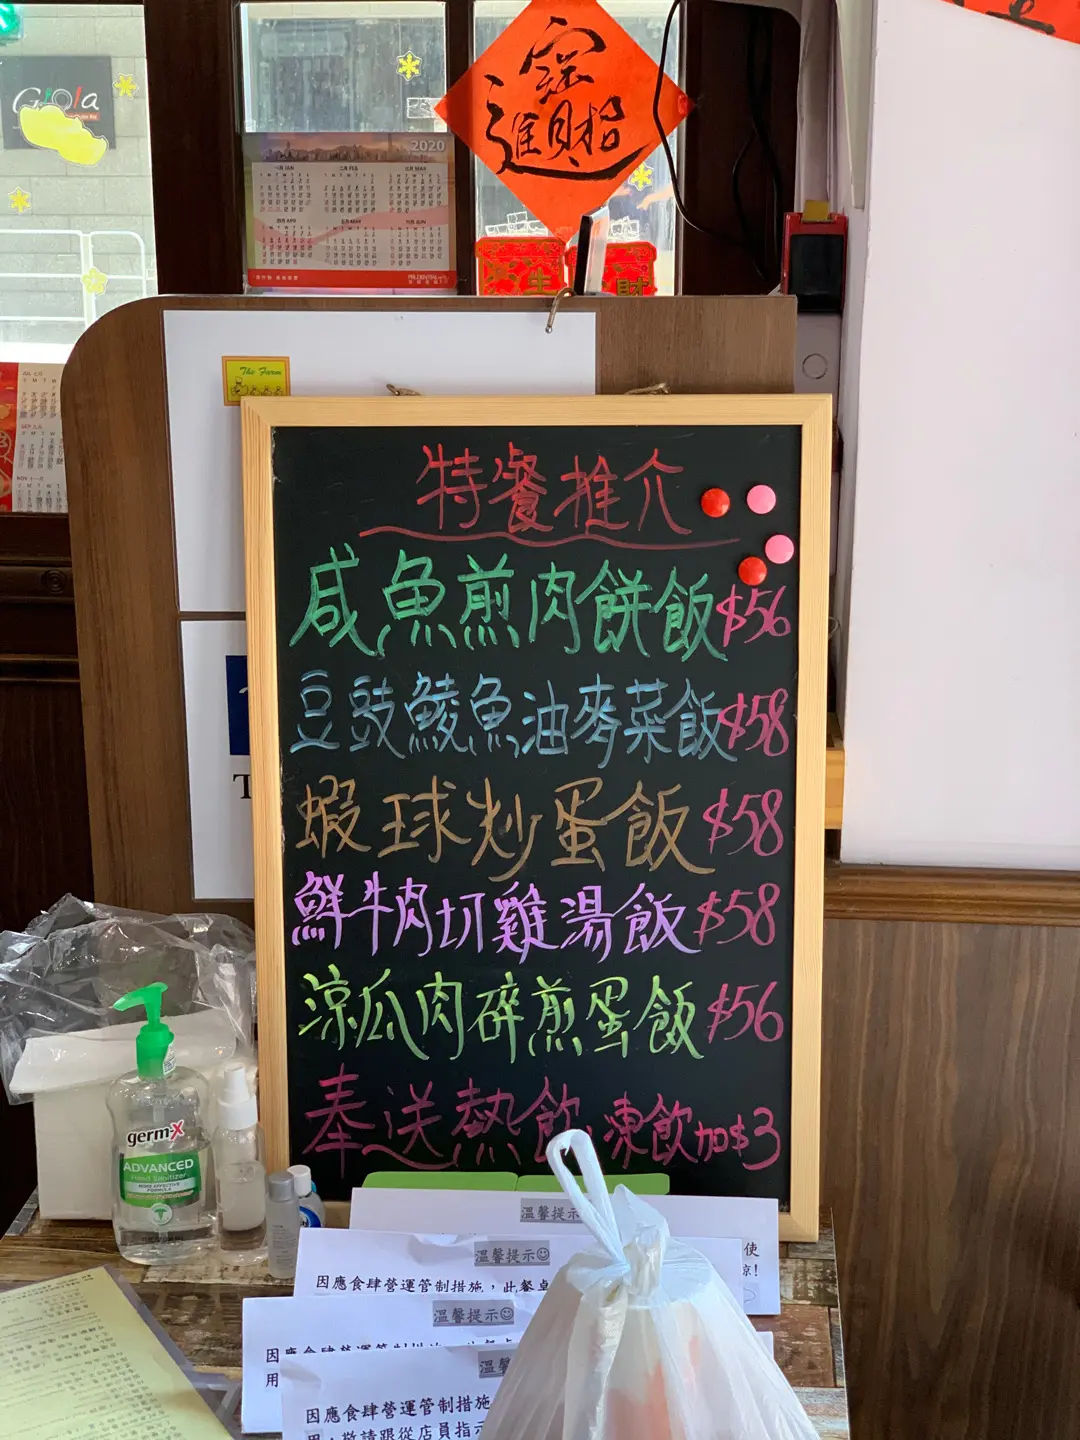 Gioia
2020
PRUDENTIAL
招財進寶
生
財
The Farm
特餐推介
咸魚煎肉餅飯$56
豆豉鯪魚油麥菜飯$58
蝦球炒蛋飯$58
鮮牛肉切雞湯飯$58
涼瓜肉碎煎蛋飯$56
奉送熱飲,凍飲加$3
germ-X
ADVANCED
Hand Sanitizer
MORE EFFECTIVE
FORMULA
溫馨提示
使
溫馨提示☺
因應食肆營運管制措施，此餐桌
諒!
溫馨提示☺
因應食肆營運管制措施
用
溫馨
因應食肆營運管制措施
用，敬請跟從店員指示